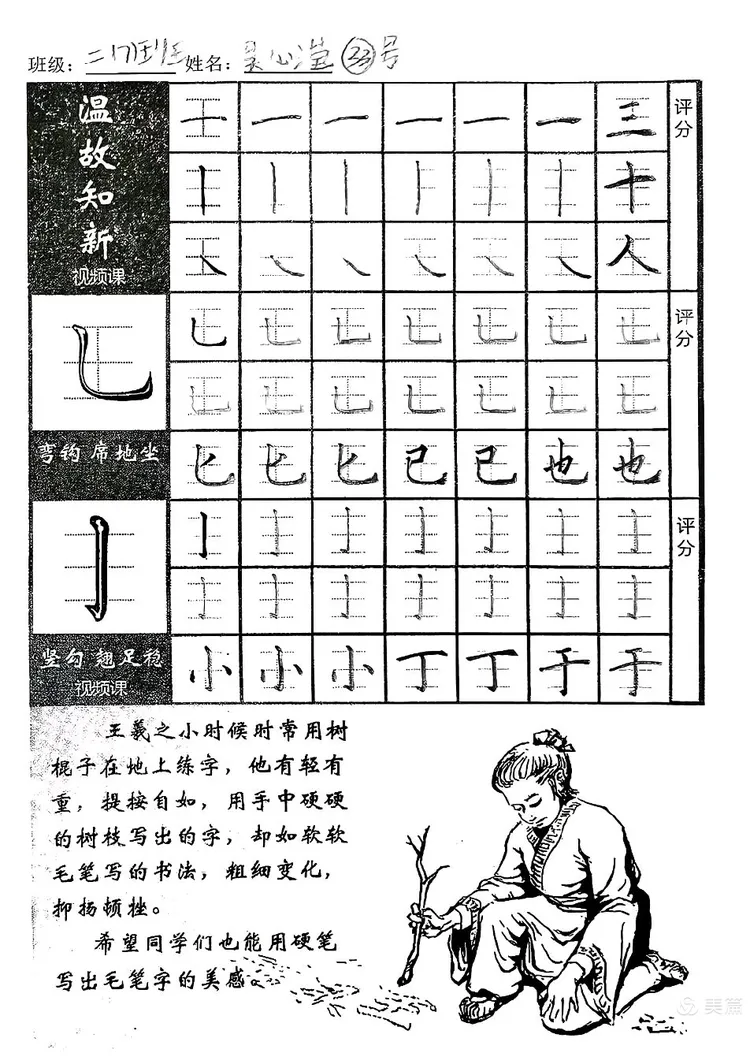 班级： 姓名：吴心滢 ㉝号
温故知新
视频课
一 一 一 一 一 一 三
评分
丨 丨 丨 丨 丨 丨 十
㇏ ㇏ ㇏ ㇏ ㇏ ㇏ 人
乚 乚 乚 乚 乚 乚 乚 乚
评分
乚 乚 乚 乚 乚 乚 乚
弯钩 席地坐
匕 匕 匕 已 已 也 也
亅 亅 亅 亅 亅 亅 亅 亅
评分
亅 亅 亅 亅 亅 亅 亅
竖勾 翘足稳
视频课
小 小 小 丁 丁 于 于
王羲之小时候时常用树
棍子在地上练字，他有轻有
重，提按自如，用手中硬硬
的树枝写出的字，却如软软
毛笔写的书法，粗细变化，
抑扬顿挫。
希望同学们也能用硬笔
写出毛笔字的美感。
美篇